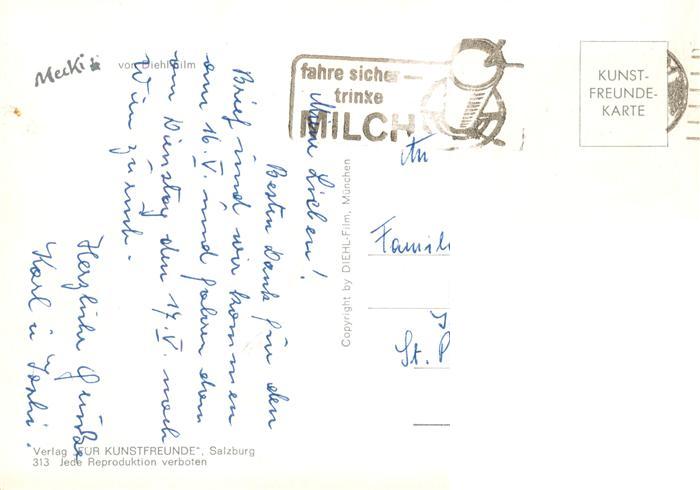 Mecki
von Diehl-Film
fahre sicher
trinke
MILCH
KUNST-
FREUNDE-
KARTE
Meine Lieben!
Besten Dank für den
Brief und wir kommen
am 16. V. und fahren dann
am Dienstag den 17. V. nach
Wien zurück.
Herzliche Grüße
Karl u.
An
Famili
St. P
Copyright by DIEHL-Film, München
Verlag „FÜR KUNSTFREUNDE“, Salzburg
313 Jede Reproduktion verboten